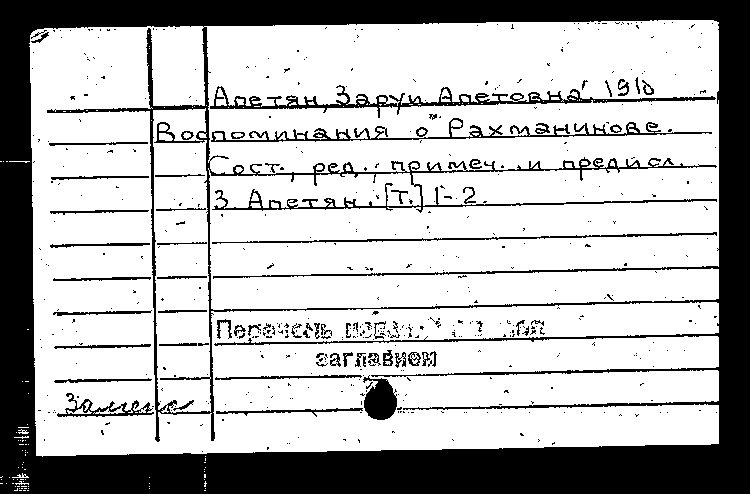 Апетян, Заруи Апетовна 1910
Воспоминания о Рахманинове.
Сост., ред., примеч. и предисл.
З. Апетян. [Т.] 1-2.
Перечень под
заглавием
Замена